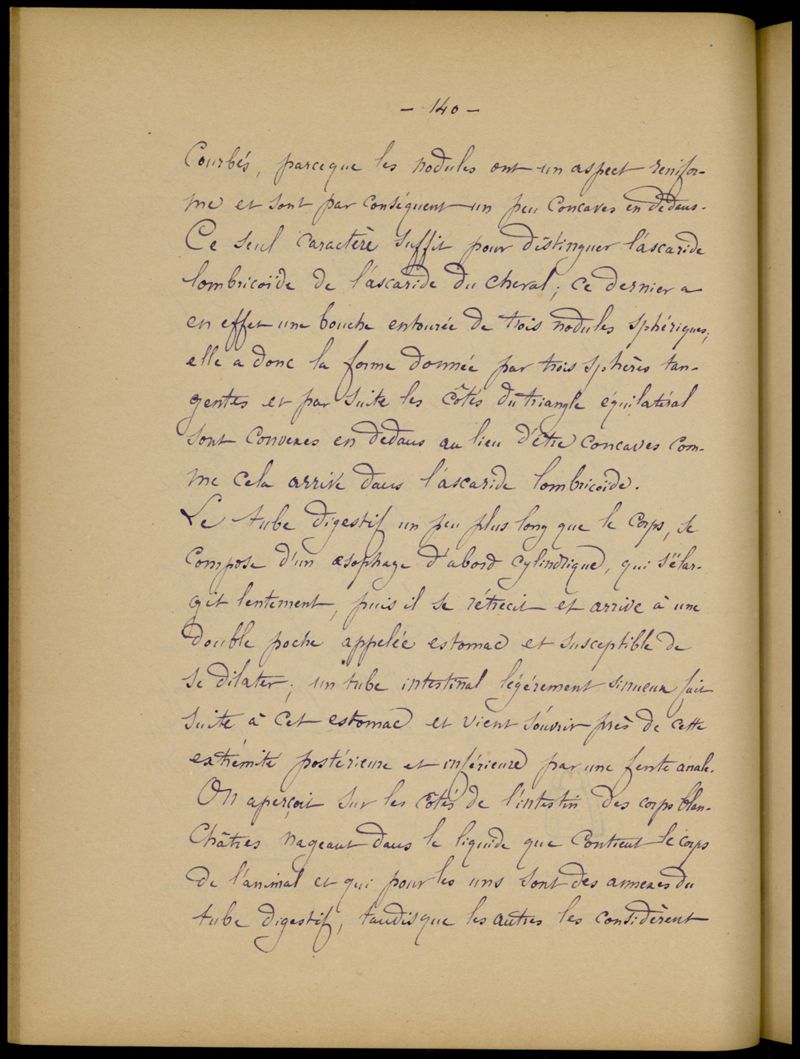 — 140 —
Courbés, parceque les nodules ont un aspect renifor-
me et sont par conséquent un peu concaves en dedans.
Ce seul caractère suffit pour distinguer l'ascaride
lombricoïde de l'ascaride du cheval ; ce dernier a
en effet une bouche entourée de trois nodules sphériques ;
elle a donc la forme donnée par trois sphères tan-
gentes et par suite les côtés du triangle équilatéral
sont convexes en dedans au lieu d'être concaves com-
me cela arrive dans l'ascaride lombricoïde.
Le tube digestif un peu plus long que le corps, se
compose d'un œsophage d'abord cylindrique, qui s'élar-
git lentement, puis il se rétrécit et arrive à une
double poche appelée estomac et susceptible de
se dilater ; un tube intestinal légèrement sinueux fait
suite à cet estomac et vient s'ouvrir près de cette
extrémité postérieure et inférieure par une fente anale.
On aperçoit sur les côtés de l'intestin des corps blan-
châtres nageant dans le liquide que contient le corps
de l'animal et qui pour les uns sont des annexes du
tube digestif, tandis que les autres les considèrent